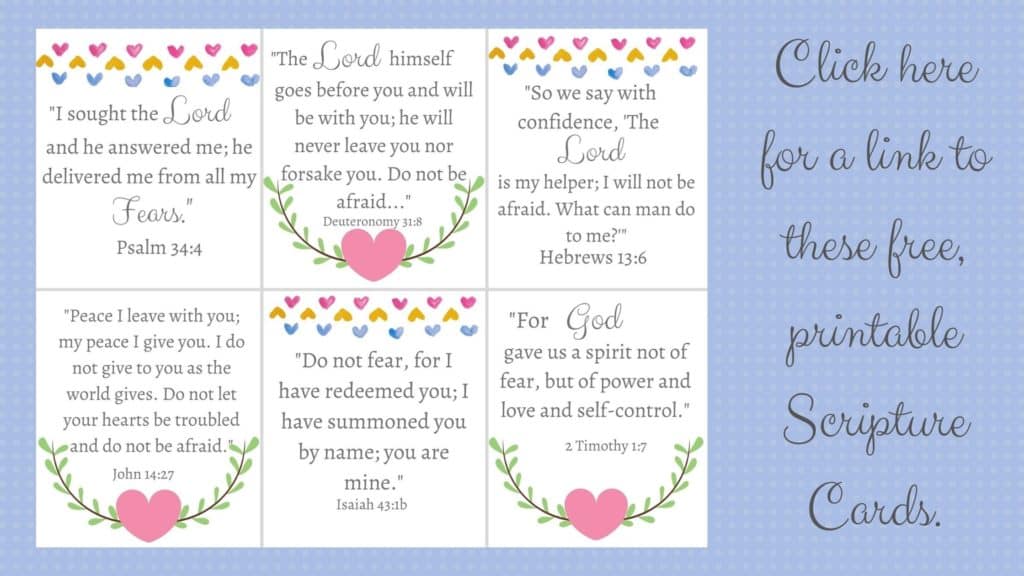 "I sought the Lord
and he answered me; he
delivered me from all my
Fears."
Psalm 34:4
"The Lord himself
goes before you and will
be with you; he will
never leave you nor
forsake you. Do not be
afraid..."
Deuteronomy 31:8
"So we say with
confidence, 'The
Lord
is my helper; I will not be
afraid. What can man do
to me?'"
Hebrews 13:6
"Peace I leave with you;
my peace I give you. I do
not give to you as the
world gives. Do not let
your hearts be troubled
and do not be afraid."
John 14:27
"Do not fear, for I
have redeemed you; I
have summoned you
by name; you are
mine."
Isaiah 43:1b
"For God
gave us a spirit not of
fear, but of power and
love and self-control."
2 Timothy 1:7
Click here
for a link to
these free,
printable
Scripture
Cards.